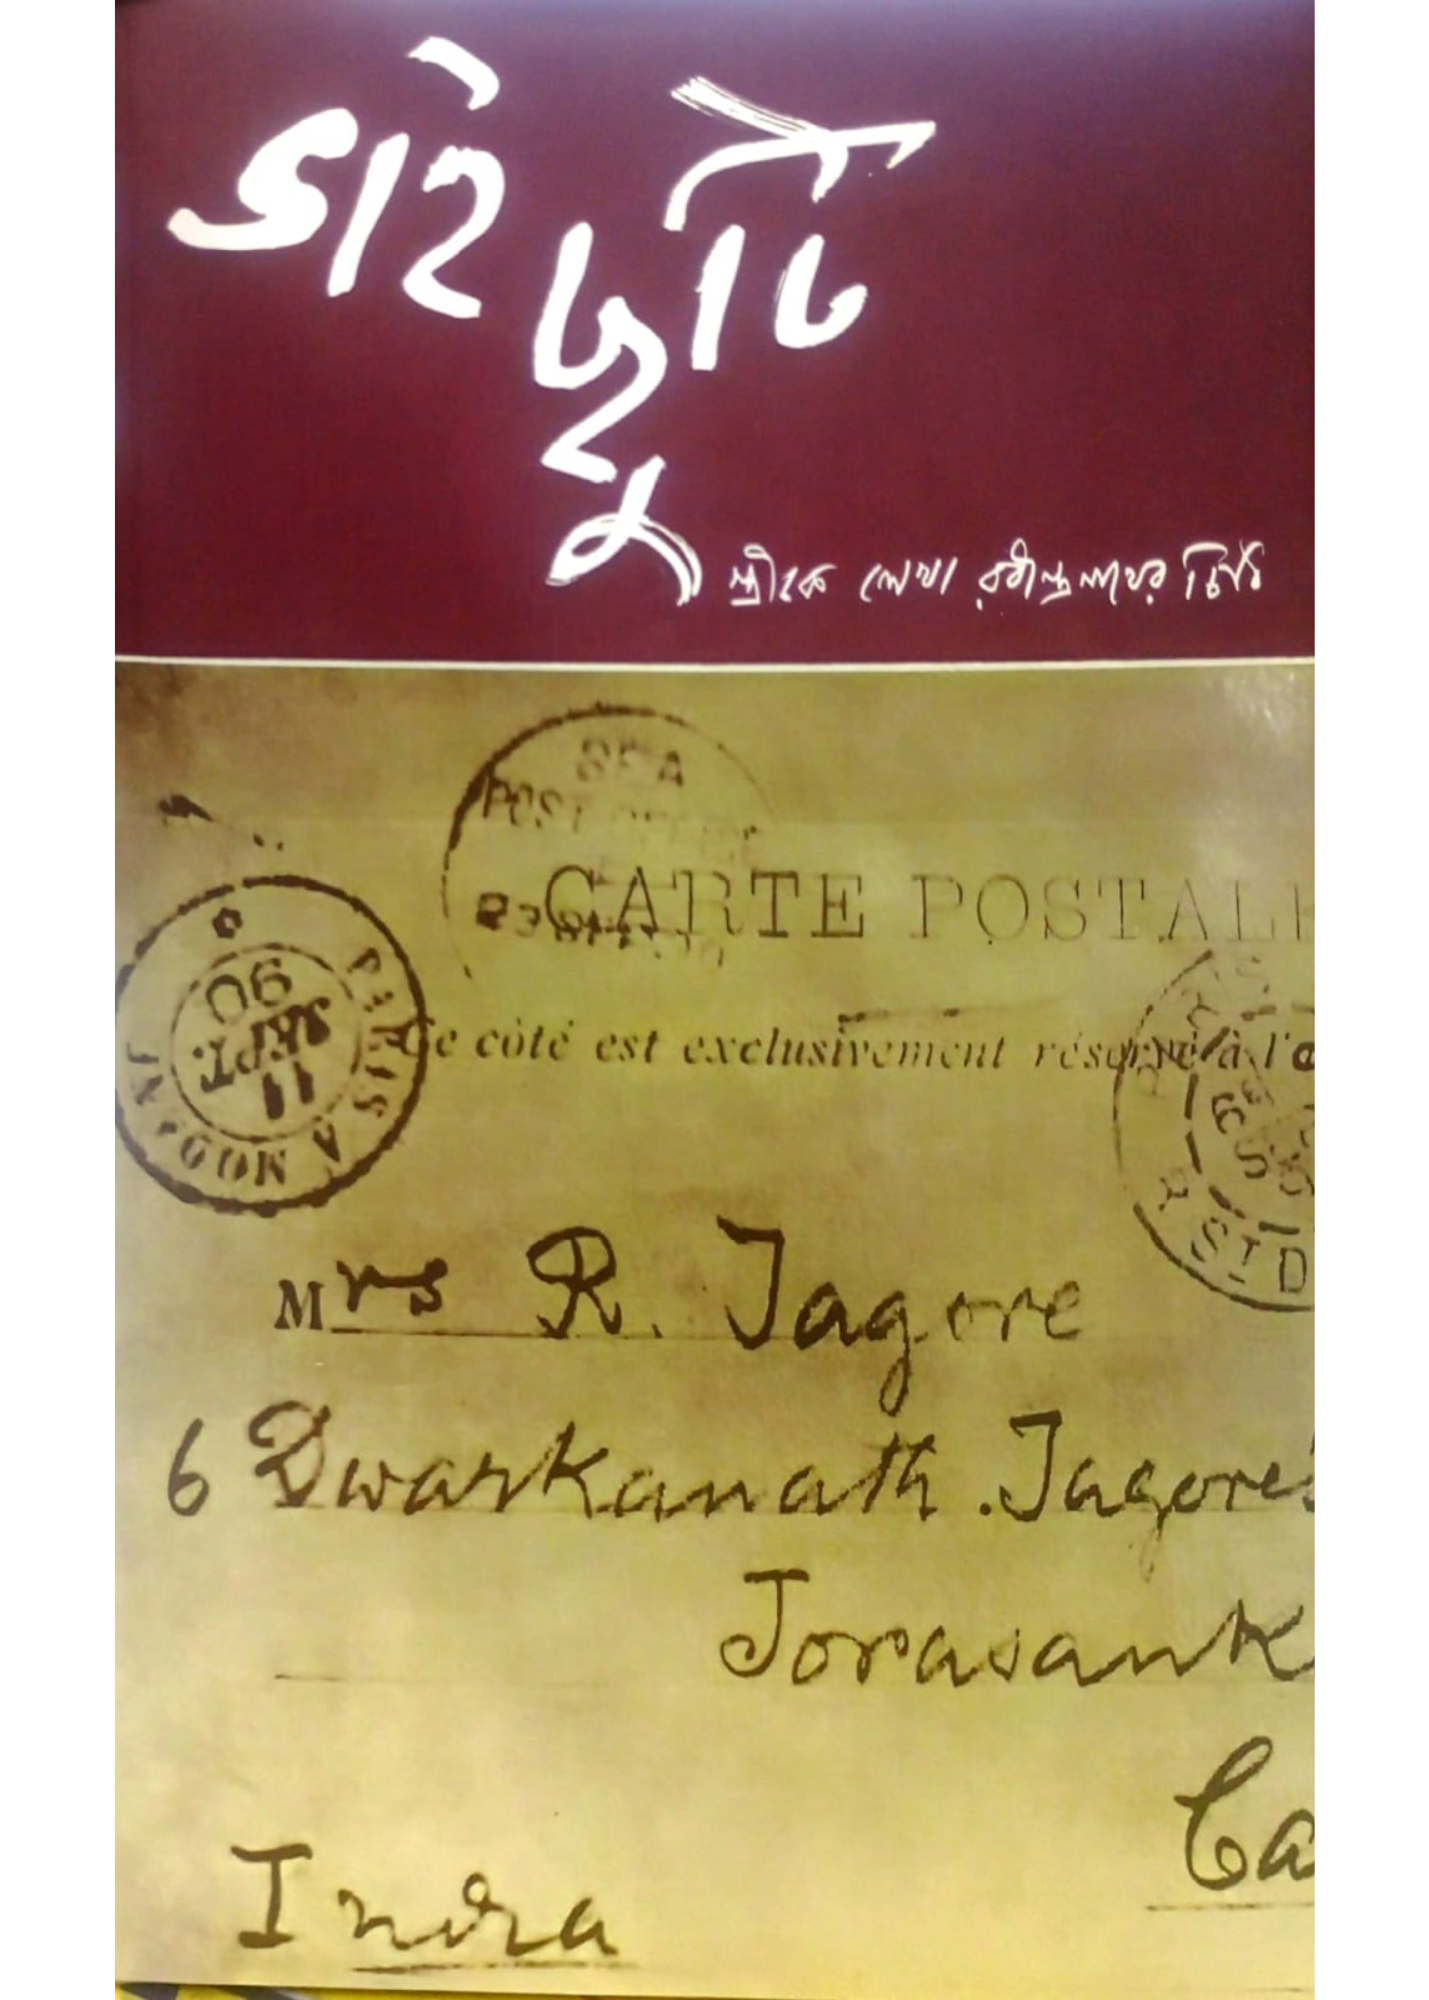 ভাই ছুটি
স্ত্রীকে লেখা রবীন্দ্রনাথের চিঠি
SEA
POST OFFICE
CARTE POSTALE
Ce côté est exclusivement réservé à l'a
PARIS A MODANE
11
SEPT.
90
Mrs R. Tagore
6 Dwarkanath Tagore's
Jorasank
Ca
India